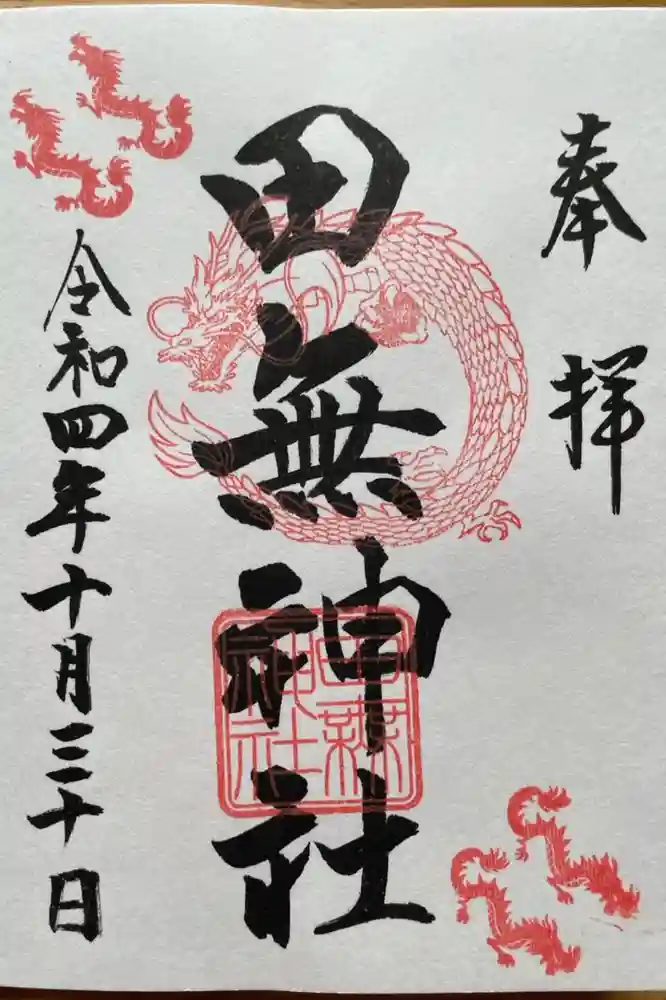 奉拝
田無神社
田無神社
令和四年十月三十日